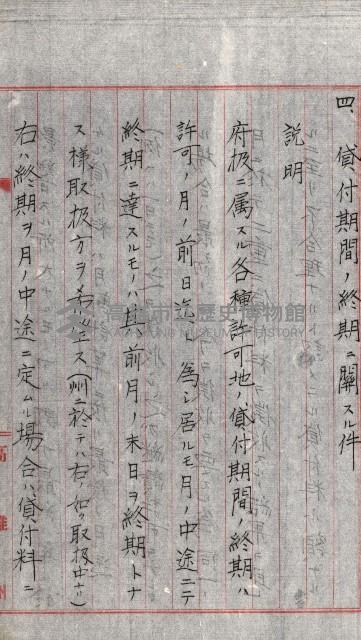 四、貸付期間ノ終期ニ關スル件
説明
府扱ニ属スル各種許可地ノ貸付期間ノ終期ハ
許可ノ月ノ前日迄ト為シ居ルモ月ノ中途ニテ
終期ニ達スルモノハ其ノ前月ノ末日ヲ終期トナ
ス様取扱方ヲ (州ニ於テハ右ノ如ク取扱中ナリ)
右ハ終期ヲ月ノ中途ニ定ムル場合ハ貸付料ニ
高雄州
高雄市立歷史博物館
KAOHSIUNG MUSEUM OF HISTORY